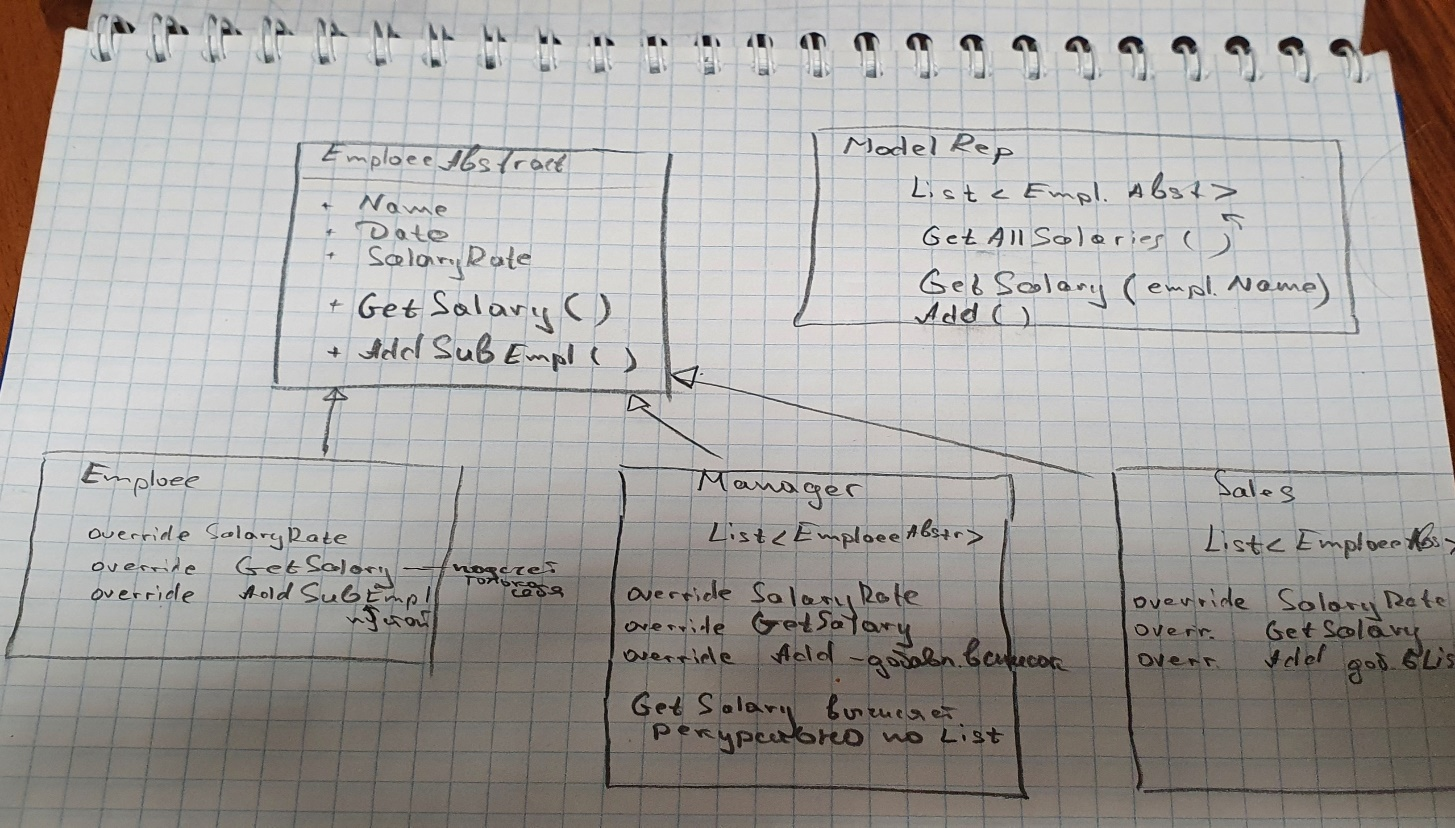 EmploeeAbstract
+ Name
+ Date
+ SalaryRate
+ GetSalary()
+ AddSubEmpl()
Model Rep
List < Empl. Abst >
GetAllSalaries ( )
Get Salary (empl. Name)
Add ( )
Emploee
override SalaryRate
override GetSalary — подсчет
только себя
override AddSubEmpl
пустой
Manager
List < EmploeeAbstr >
override SalaryRate
override GetSalary
override Add - добавл. в список
Get Salary вычисляет
рекурсивно по List
Sales
List < EmploeeAbs >
override SalaryRate
overr. GetSalary
overr. Add доб. в Lis